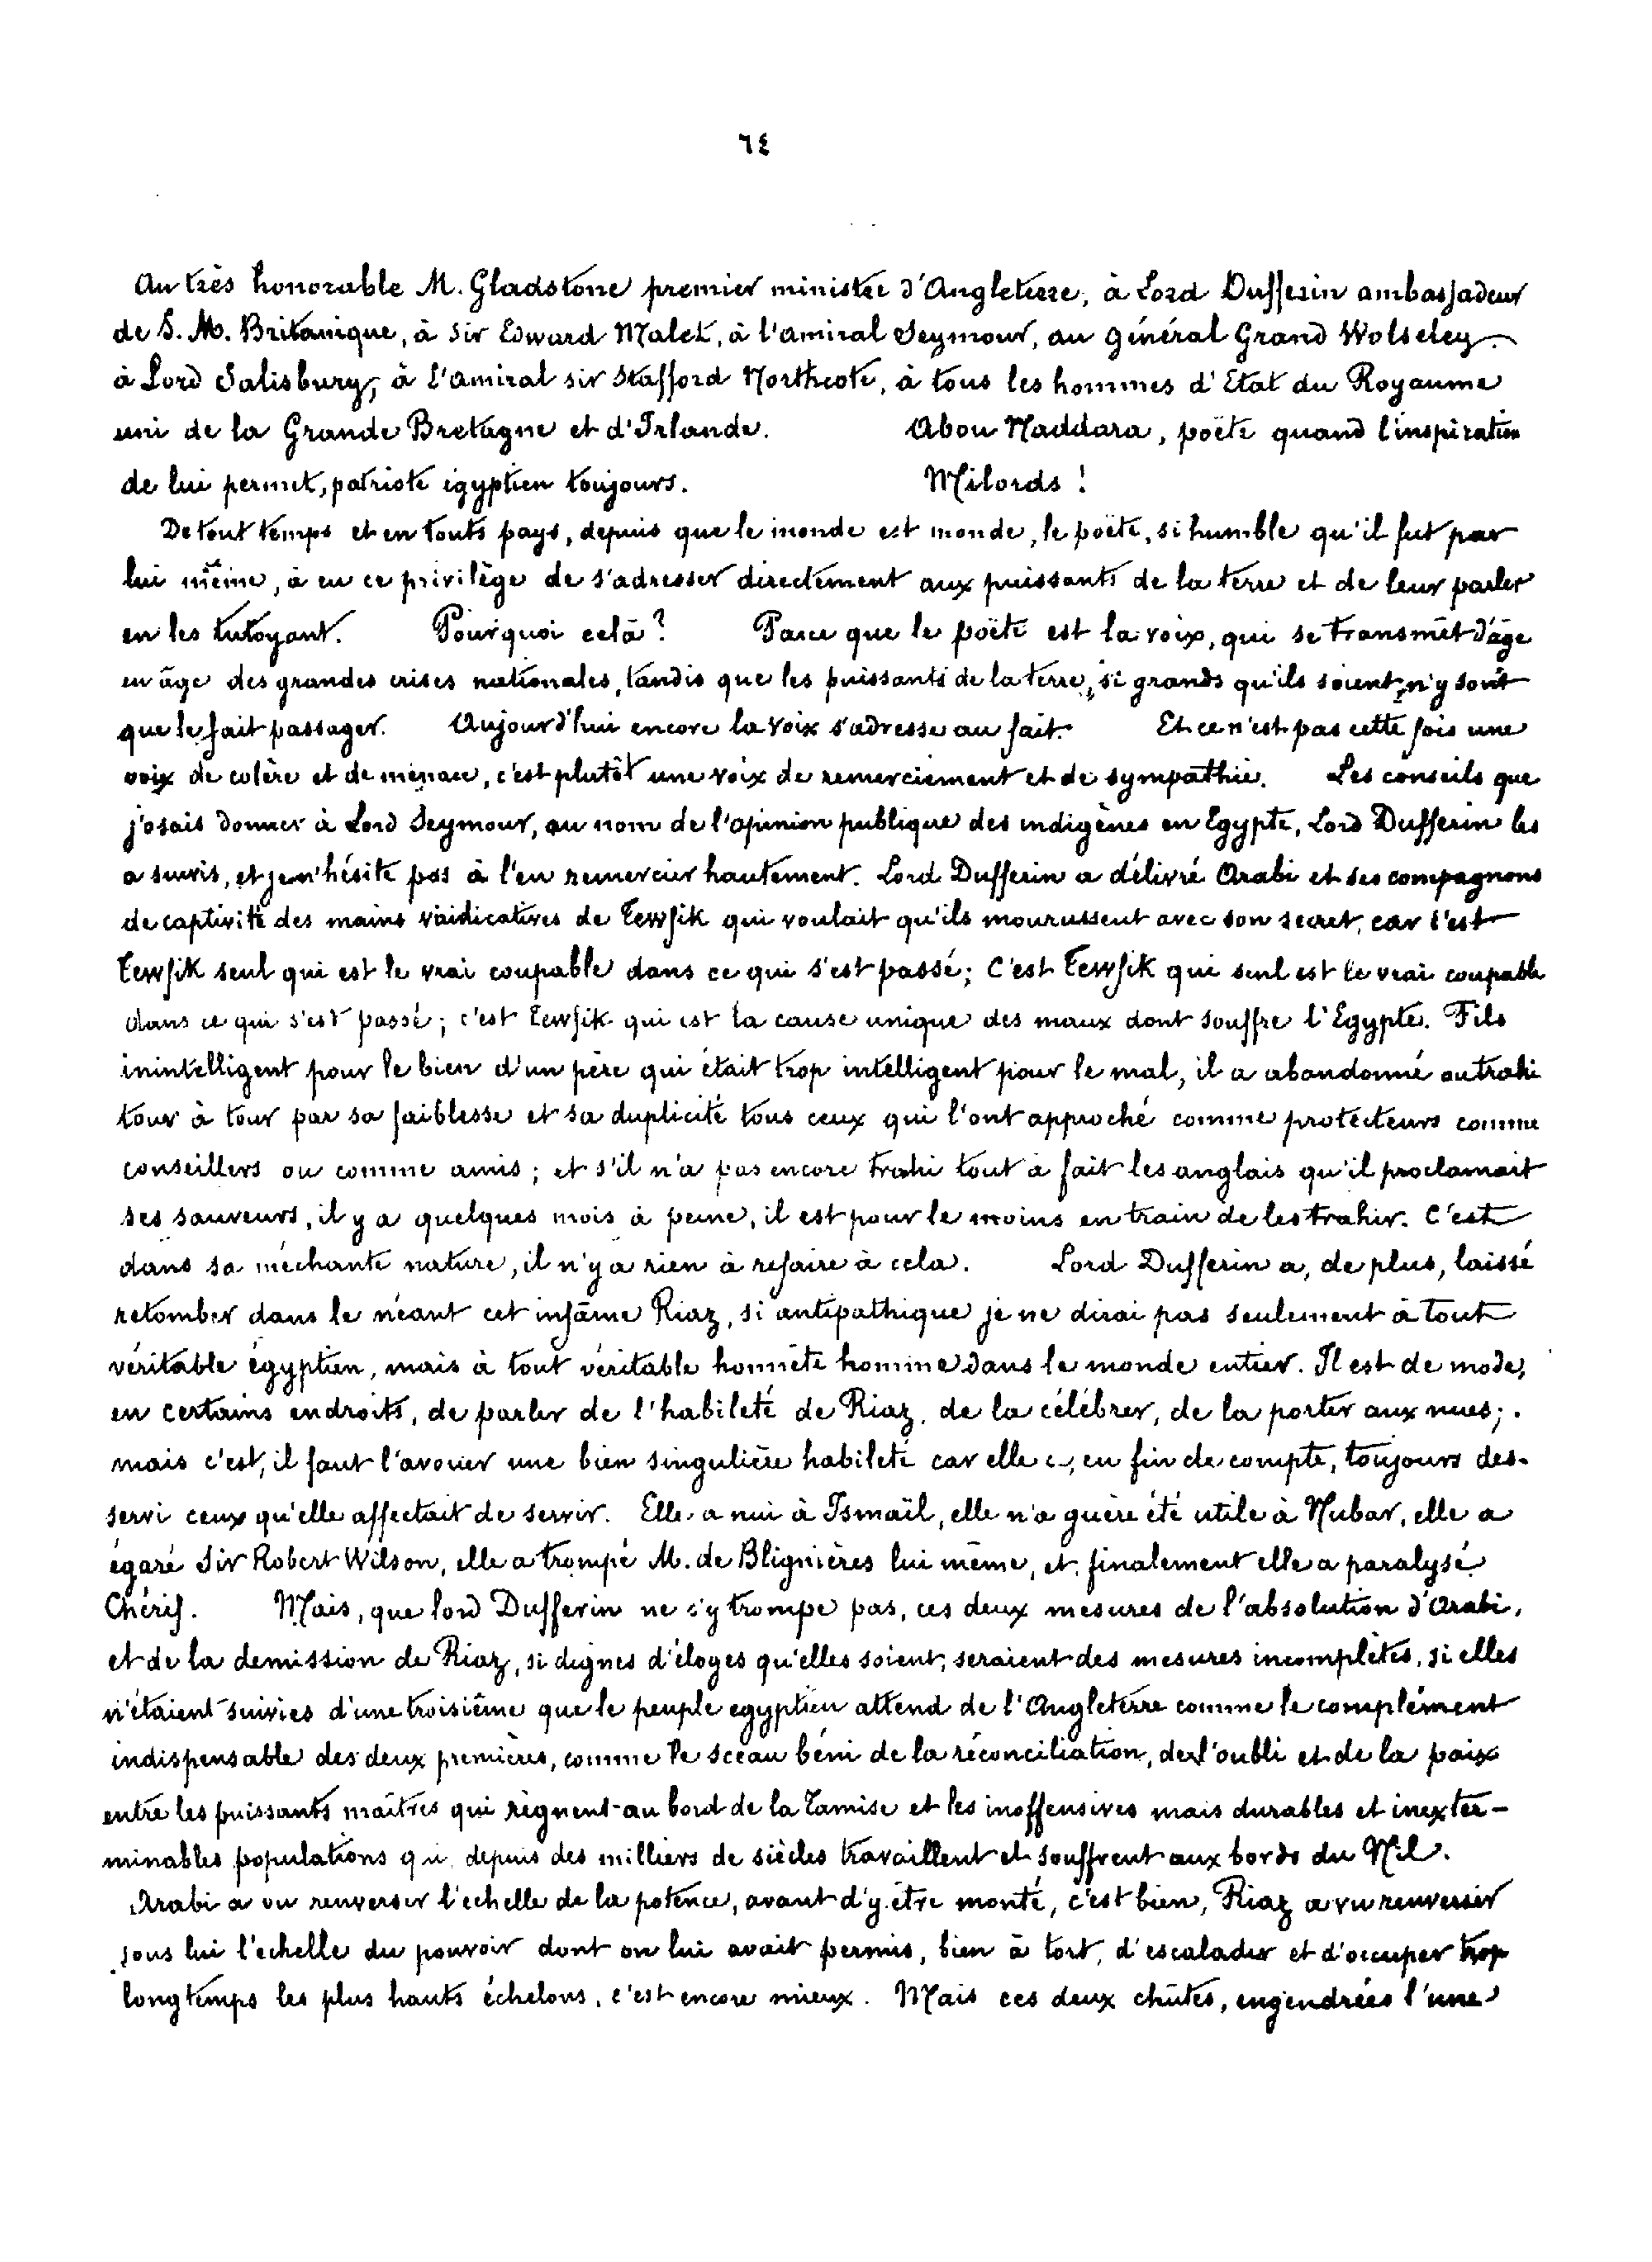 ٦٤
Au très honorable M. Gladstone premier ministre d'Angleterre, à Lord Dufferin ambassadeur
de S. M. Britanique, à Sir Edward Malet, à l'amiral Seymour, au général Grand Wolseley
à Lord Salisbury, à l'amiral sir Stafford Northcote, à tous les hommes d'Etat du Royaume
uni de la Grande Bretagne et d'Irlande. Abou Naddara, poëte quand l'inspiration
de lui permet, patriote égyptien toujours. Milords !
De tout temps et en touts pays, depuis que le monde est monde, le poëte, si humble qu'il fut par
lui même, à eu ce privilège de s'adresser directement aux puissants de la terre et de leur parler
en les tutoyant. Pourquoi celà ? Parce que le poëte est la voix, qui se transmet d'âge
en âge des grandes crises nationales, tandis que les puissants de la terre, si grands qu'ils soient, n'y sont
que le fait passager. Aujourd'hui encore la voix s'adresse au fait. Et ce n'est pas cette fois une
voix de colère et de menace, c'est plutôt une voix de remerciement et de sympathie. Les conseils que
j'osais donner à Lord Seymour, au nom de l'opinion publique des indigènes en Egypte, Lord Dufferin les
a suivis, et je n'hésite pas à l'en remercier hautement. Lord Dufferin a délivré Arabi et ses compagnons
de captivité des mains vindicatives de Tewfik qui voulait qu'ils mourussent avec son secret, car c'est
Tewfik seul qui est le vrai coupable dans ce qui s'est passé; C'est Tewfik qui seul est le vrai coupable
dans ce qui s'est passé; c'est Tewfik qui est la cause unique des maux dont souffre l'Egypte. Fils
inintelligent pour le bien d'un père qui était trop intelligent pour le mal, il a abandonné ou trahi
tour à tour par sa faiblesse et sa duplicité tous ceux qui l'ont approché comme protecteurs comme
conseillers ou comme amis; et s'il n'a pas encore trahi tout à fait les anglais qu'il proclamait
ses sauveurs, il y a quelques mois à peine, il est pour le moins en train de les trahir. C'est
dans sa méchante nature, il n'y a rien à refaire à cela. Lord Dufferin a, de plus, laissé
retomber dans le néant cet infâme Riaz, si antipathique je ne dirai pas seulement à tout
véritable égyptien, mais à tout véritable honnête homme dans le monde entier. Il est de mode,
en certains endroits, de parler de l'habileté de Riaz, de la célébrer, de la porter aux nues;
mais c'est, il faut l'avouer une bien singulière habileté car elle a, en fin de compte, toujours des-
servi ceux qu'elle affectait de servir. Elle a nui à Ismaïl, elle n'a guère été utile à Nubar, elle a
égaré Sir Robert Wilson, elle a trompé M. de Blignières lui même, et finalement elle a paralysé
Chérif. Mais, que lord Dufferin ne s'y trompe pas, ces deux mesures de l'absolution d'Arabi,
et de la demission de Riaz, si dignes d'éloges qu'elles soient, seraient des mesures incomplètes, si elles
n'étaient suivies d'une troisième que le peuple egyptien attend de l'Angleterre comme le complément
indispensable des deux premières, comme le sceau béni de la réconciliation, de l'oubli et de la paix
entre les puissants maîtres qui règnent au bord de la Tamise et les inoffensives mais durables et inexter-
minables populations qui depuis des milliers de siècles travaillent et souffrent aux bords du Nil.
Arabi a vu renverser l'echelle de la potence, avant d'y être monté, c'est bien, Riaz a vu renverser
sous lui l'echelle du pouvoir dont on lui avait permis, bien à tort, d'escalader et d'occuper trop
longtemps les plus hauts échelons, c'est encore mieux. Mais ces deux chûtes, engendrées l'une